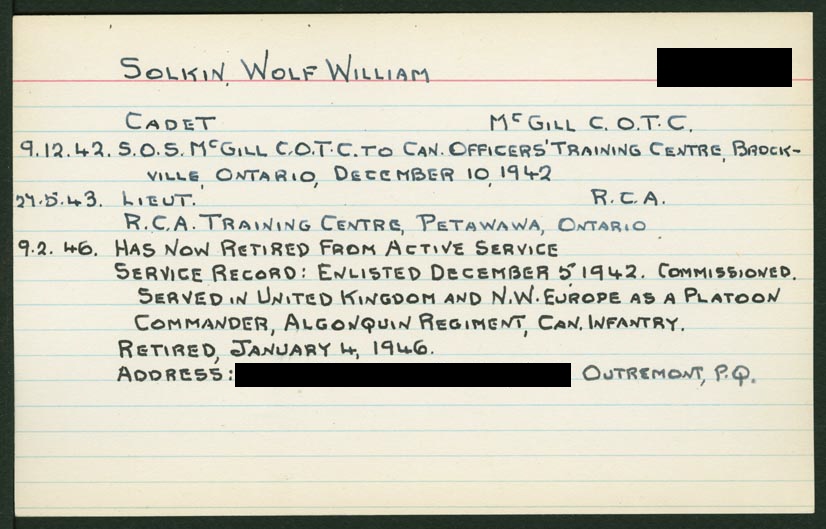 SOLKIN, WOLF WILLIAM
CADET McGILL C.O.T.C.
9.12.42. S.O.S. McGILL C.O.T.C. TO CAN. OFFICERS' TRAINING CENTRE, BROCK-
VILLE, ONTARIO, DECEMBER 10, 1942
27.5.43. LIEUT. R.C.A.
R.C.A. TRAINING CENTRE, PETAWAWA, ONTARIO
9.2.46. HAS NOW RETIRED FROM ACTIVE SERVICE
SERVICE RECORD: ENLISTED DECEMBER 5, 1942. COMMISSIONED.
SERVED IN UNITED KINGDOM AND N.W. EUROPE AS A PLATOON
COMMANDER, ALGONQUIN REGIMENT, CAN. INFANTRY.
RETIRED, JANUARY 4, 1946.
ADDRESS: OUTREMONT, P.Q.